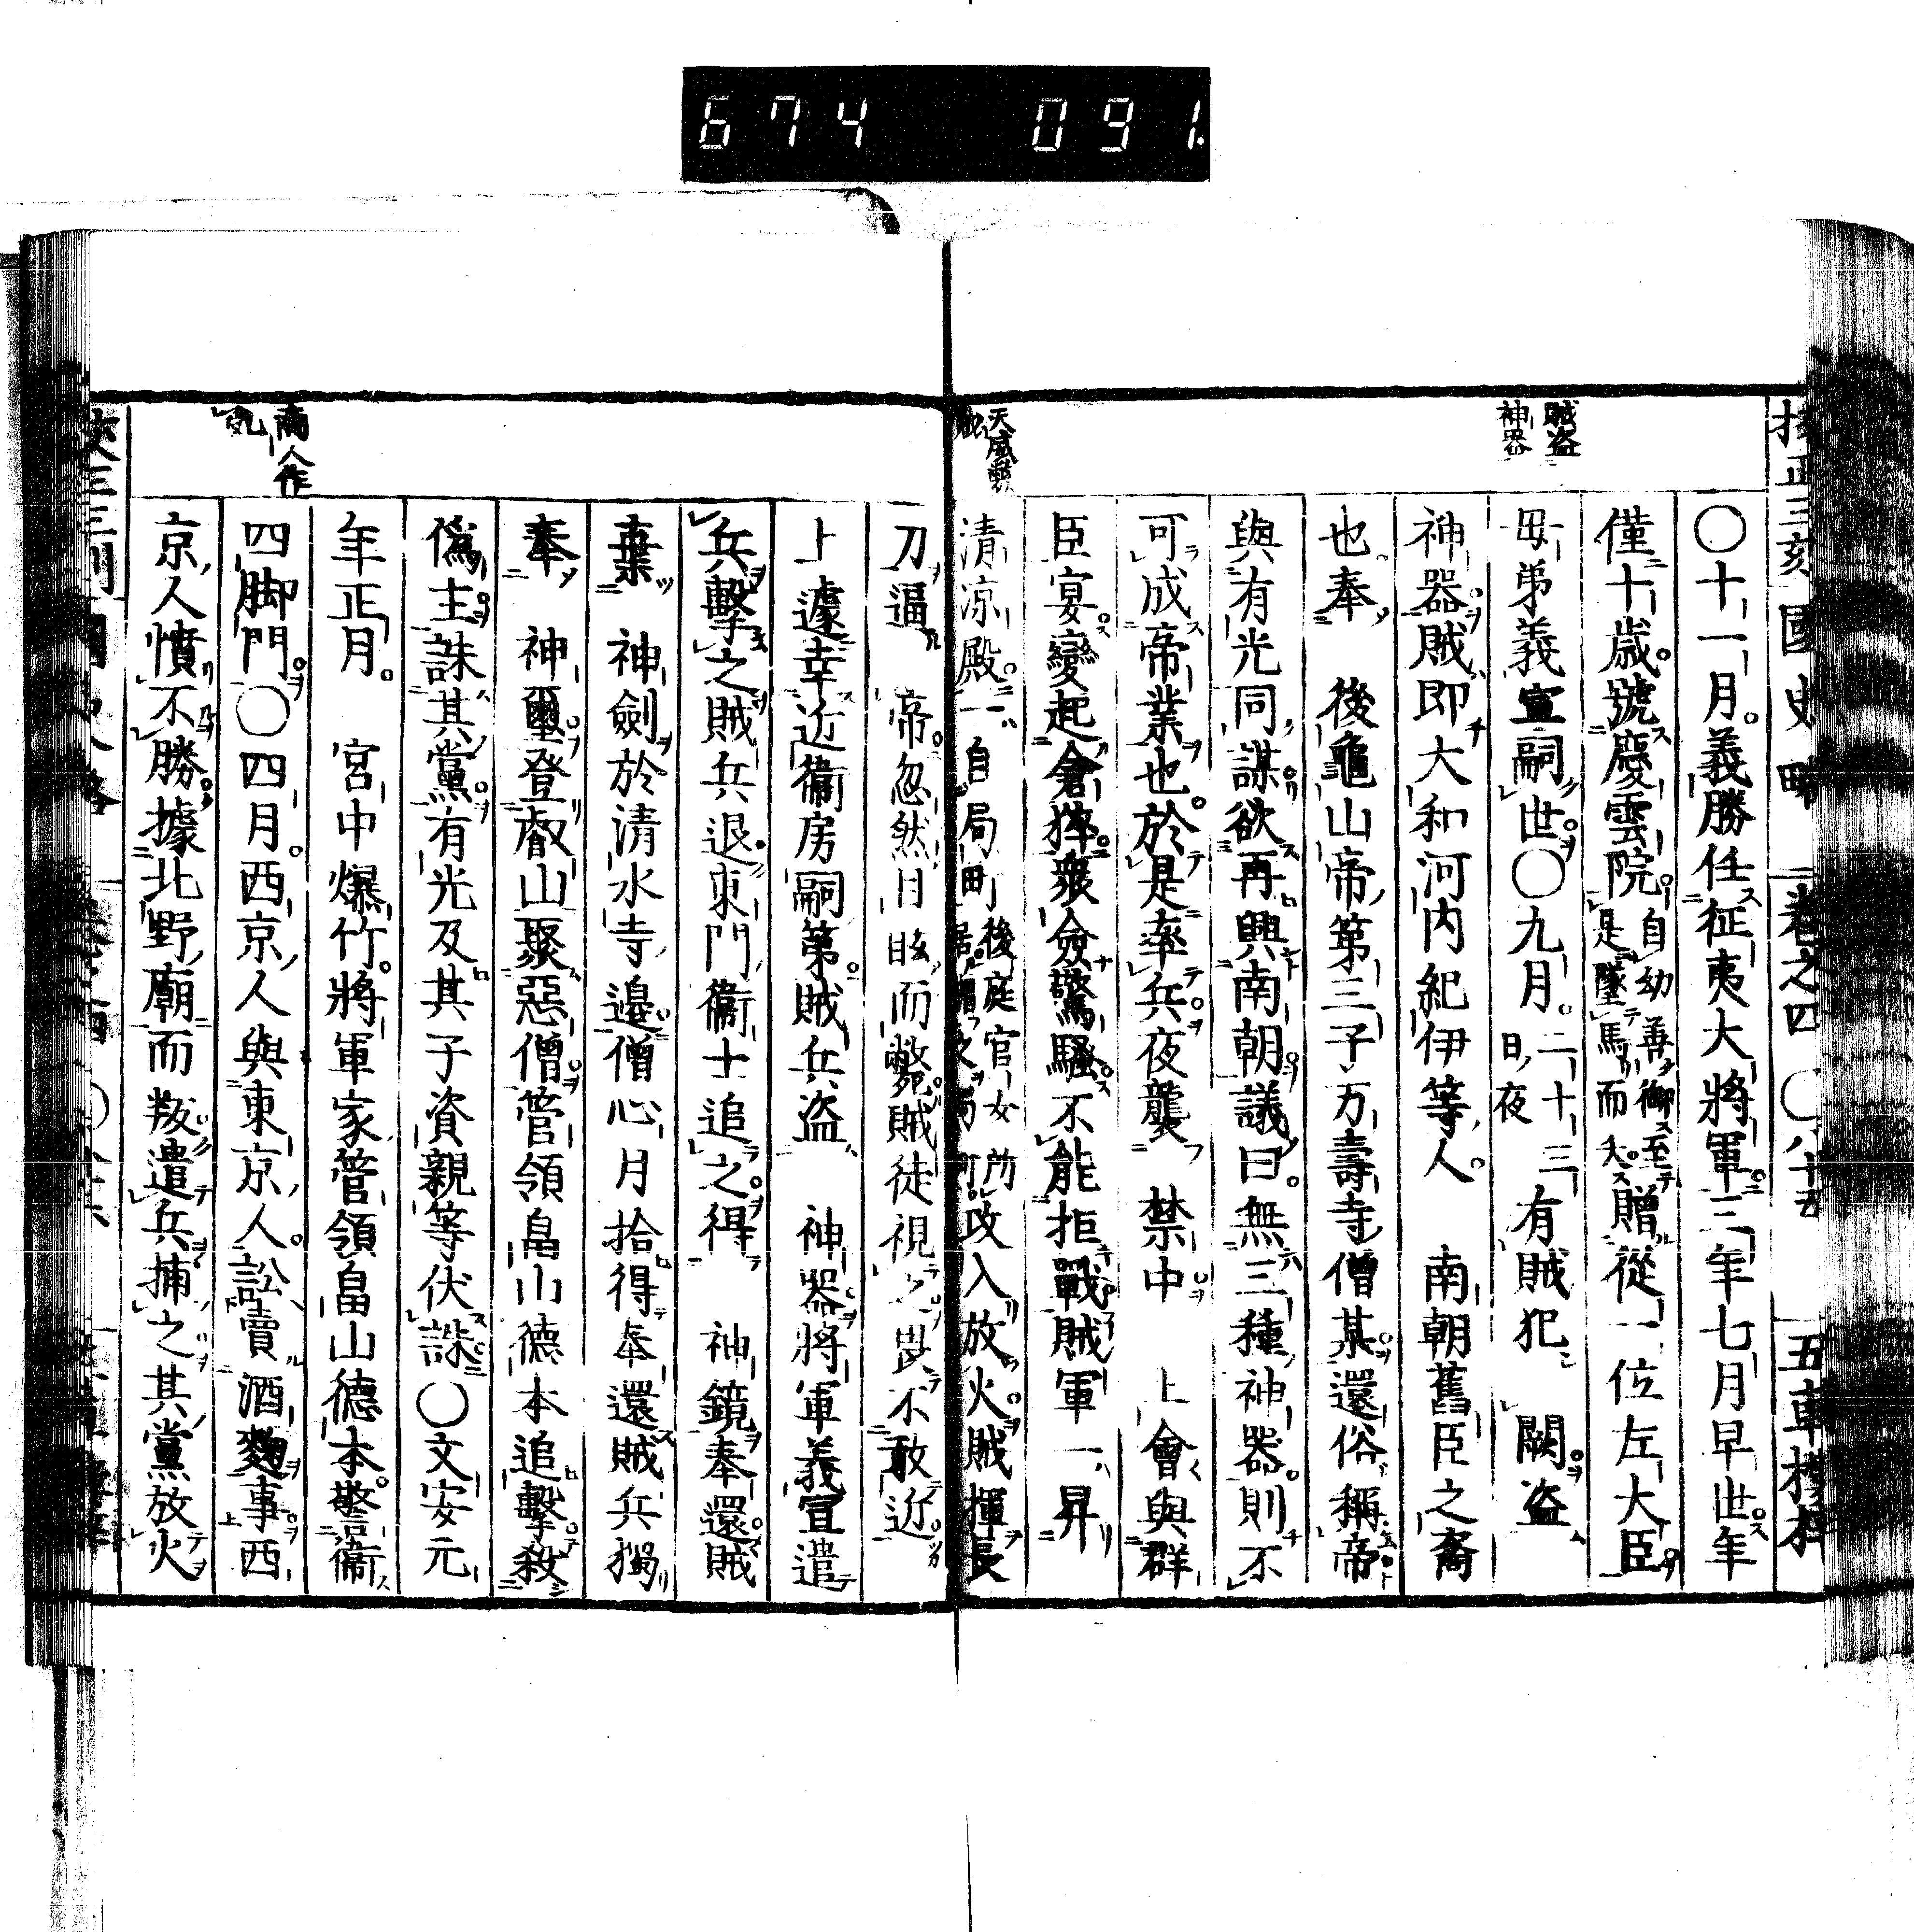 674 091
校正三刻國史略 卷之四 ○八十五 五車樓梓
賊盗
神器
○十一月義勝任征夷大將軍三年七月早世年
僅十歳號慶雲院自幼善御至
是墜馬而夭贈從一位左大臣
母弟義宣嗣世○九月二十三
日夜有賊犯 闕盗
神器賊即大和河内紀伊等人 南朝舊臣之裔
也奉 後龜山帝第三子万壽寺僧某還俗稱帝
與有光同謀欲再興南朝議曰無三種神器則不
可成帝業也於是率兵夜襲 禁中 上會與群
臣宴變起倉猝衆僉驚騷不能拒戰賊軍一昇
天威
清凉殿一自局町後庭官女所
攻入放火賊揮長
刀逼 帝忽然目眩而斃賊徒視之畏不敢近
上遽幸近衞房嗣第賊兵盗 神器將軍義宣遣
兵擊之賊兵退東門衞士追之得 神鏡奉還賊
棄 神劍於清水寺邊僧心月拾得奉還賊兵獨
奉 神璽登叡山聚惡僧管領畠山德本追擊殺
僞主誅其黨有光及其子資親等伏誅○文安元
年正月 宮中爆竹將軍家管領畠山德本警衞
商人作
乱
四脚門○四月西京人與東京人訟賣酒麴事西
京人憤不勝據北野廟而叛遣兵捕之其黨放火